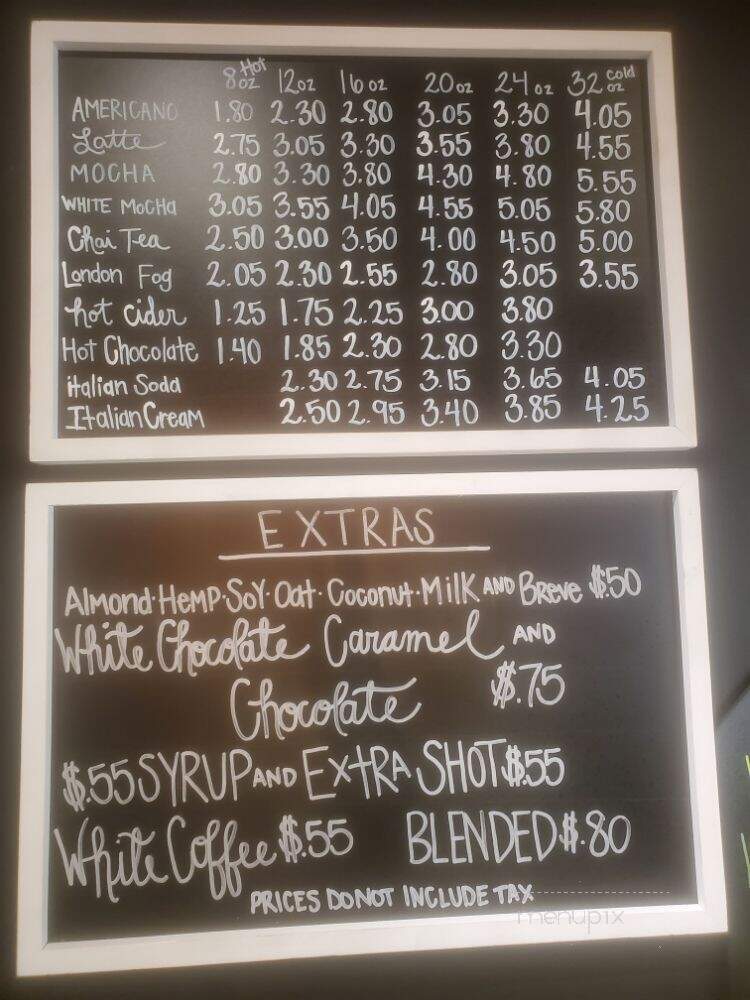 8 oz Hot 12 oz 16 oz 20 oz 24 oz 32 oz cold
AMERICANO 1.80 2.30 2.80 3.05 3.30 4.05
Latte 2.75 3.05 3.30 3.55 3.80 4.55
MOCHA 2.80 3.30 3.80 4.30 4.80 5.55
WHITE MOCHA 3.05 3.55 4.05 4.55 5.05 5.80
Chai Tea 2.50 3.00 3.50 4.00 4.50 5.00
London Fog 2.05 2.30 2.55 2.80 3.05 3.55
hot cider 1.25 1.75 2.25 3.00 3.80
Hot Chocolate 1.40 1.85 2.30 2.80 3.30
italian Soda 2.30 2.75 3.15 3.65 4.05
Italian Cream 2.50 2.95 3.40 3.85 4.25
EXTRAS
Almond·HEMP·SOY·Oat·Coconut·MilK AND Breve $.50
White Chocolate Caramel AND
Chocolate $.75
$.55 SYRUP AND EXTRA SHOT $.55
White Coffee $.55 BLENDED $.80
PRICES DO NOT INCLUDE TAX
menupix